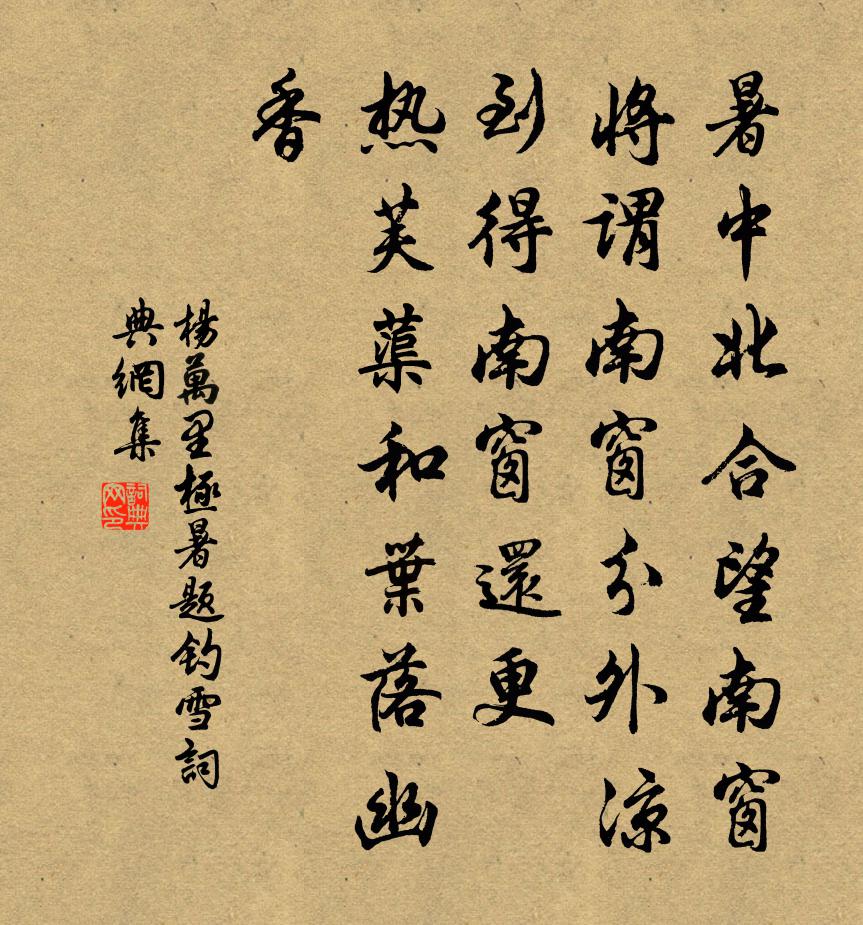 暑中北合望南窗
將謂南窗分外涼
到得南窗還更
热芙蕖和葉落幽
香
楊萬里極暑题钓雪詞
典網集
詞典
网印